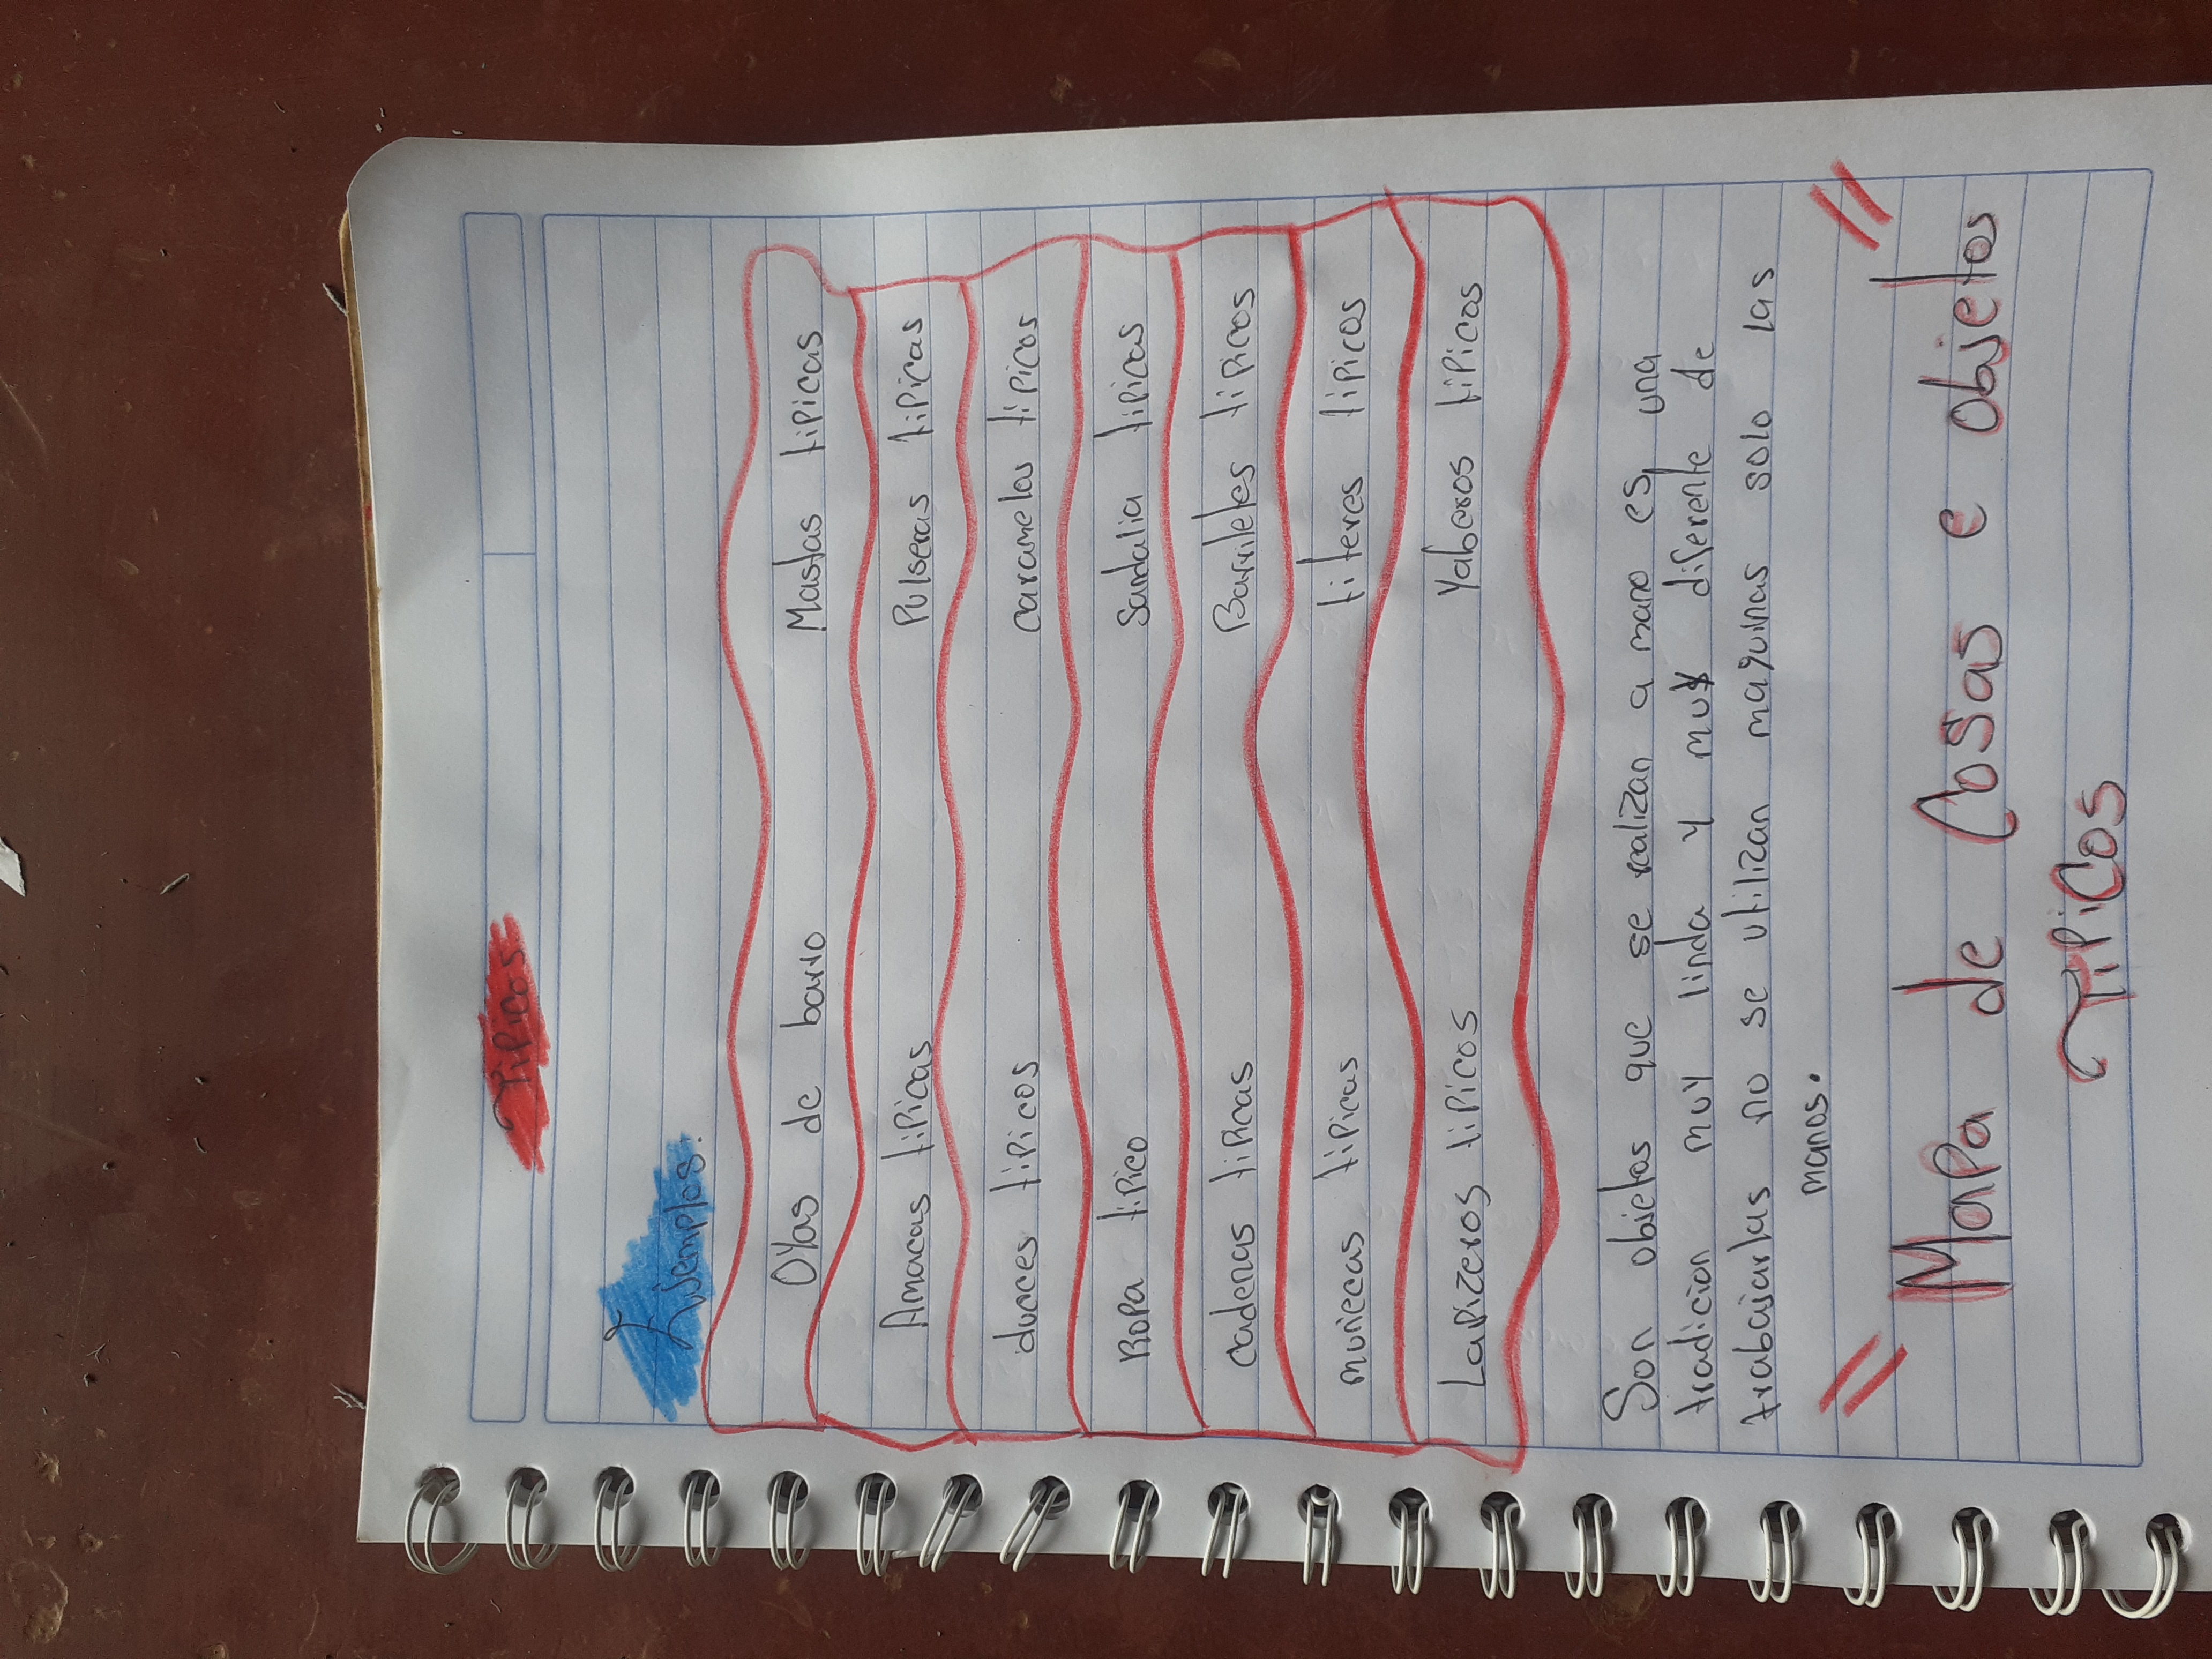 Tipicos
Ejemplos.
Oyas de barro Mastas tipicas
Amacas tipicas Pulseras tipicas
dulces tipicos caramelos tipicos
Ropa tipico Sandalia tipicas
cadenas tipicas Barriletes tipicos
muñecas tipicas titeres tipicos
Lapizeros tipicos Yaberos tipicos
Son objetos que se realizan a mano es una
tradicion muy linda y muy diferente de
trabajarlas no se utilizan maquinas solo las
manos.
" Mapa de Cosas e objetos "
Tipicos